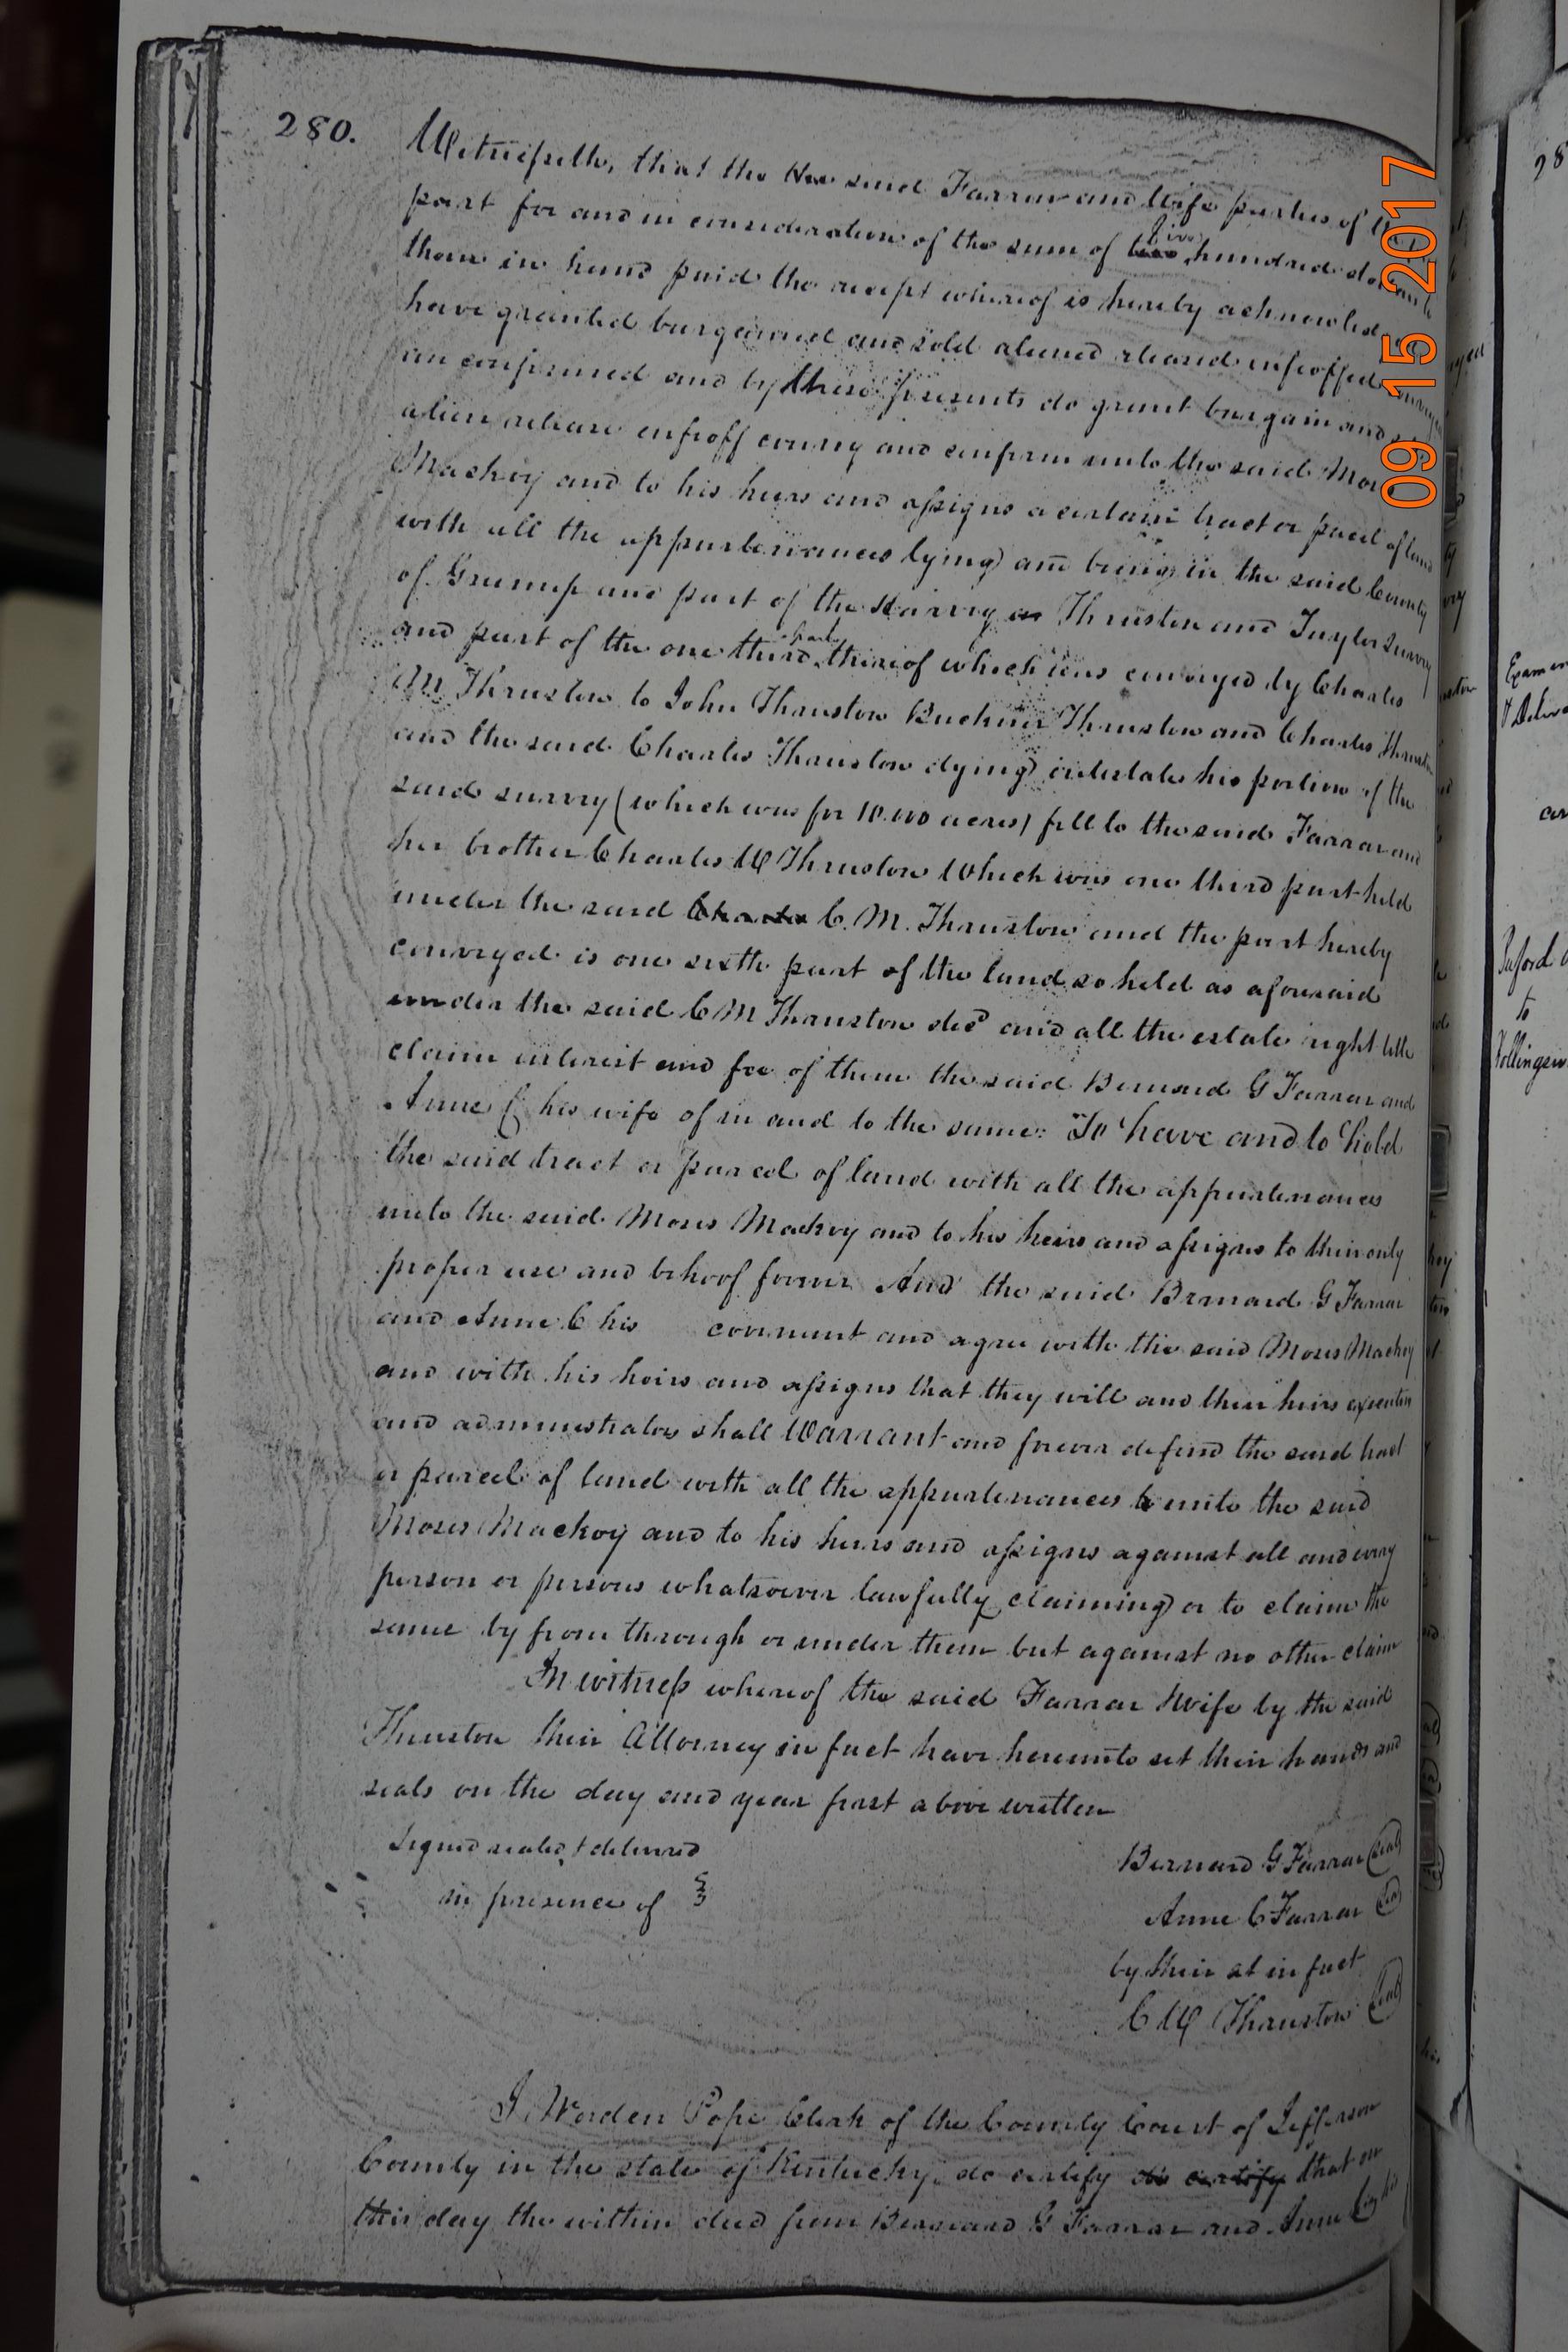 280.
Witnesseth, that the the said Farrar and Wife parties of the
part for and in consideration of the sum of two five hundred dollars
them in hand paid the receipt whereof is hereby acknowledged
have granted bargained and sold aliened released infeoffed
an confirmed and by these presents do grant bargain and
alien release enfeoff convey and confirm unto the said Moses
Mackoy and to his heirs and assigns a certain tract or parcel of land
with all the appurtenances lying and being in the said County
of Greenup and part of the Survey or Thruston and Taylor Survey
and part of the one third part thereof which was conveyed by Charles
M Thruston to John Thruston Buckner Thruston and Charles Thruston
and the said Charles Thruston dying intestate his portion of the
said survey (which was for 10.000 acres) fell to the said Farrar and
her brother Charles W Thruston Which was one third part held
under the said Charles C. M. Thruston and the part hereby
conveyed is one sixth part of the land so held as aforesaid
under the said C M Thruston decd and all the estate right title
claim interest and fee of them the said Bernard G Farrar and
Anne C his wife of in and to the same: To have and to hold
the said tract or parcel of land with all the appurtenances
unto the said Moses Mackoy and to his heirs and assigns to their only
proper use and behoof forever And the said Bernard G Farrar
and Anne C his covenant and agree with the said Moses Mackoy
and with his heirs and assigns that they will and their heirs executors
and administrators shall Warrant and forever defend the said tract
or parcel of land with all the appurtenances to unto the said
Moses Mackoy and to his heirs and assigns against all and every
person or persons whatsoever lawfully claiming or to claim the
same by from through or under them but against no other claim
In witness whereof the said Farrar & Wife by the said
Thruston their Attorney in fact have hereunto set their hands and
seals on the day and year first above written
Signed sealed & delivered
in presence of
Bernard G Farrar (seal)
Anne C Farrar (seal)
by their at in fact
C W Thruston (seal)
I, Worden Pope Clerk of the County Court of Jefferson
County in the state of Kentucky, do certify do certify that on
this day the within deed from Bernard G Farrar and Anne C
09 15 2017
28
to